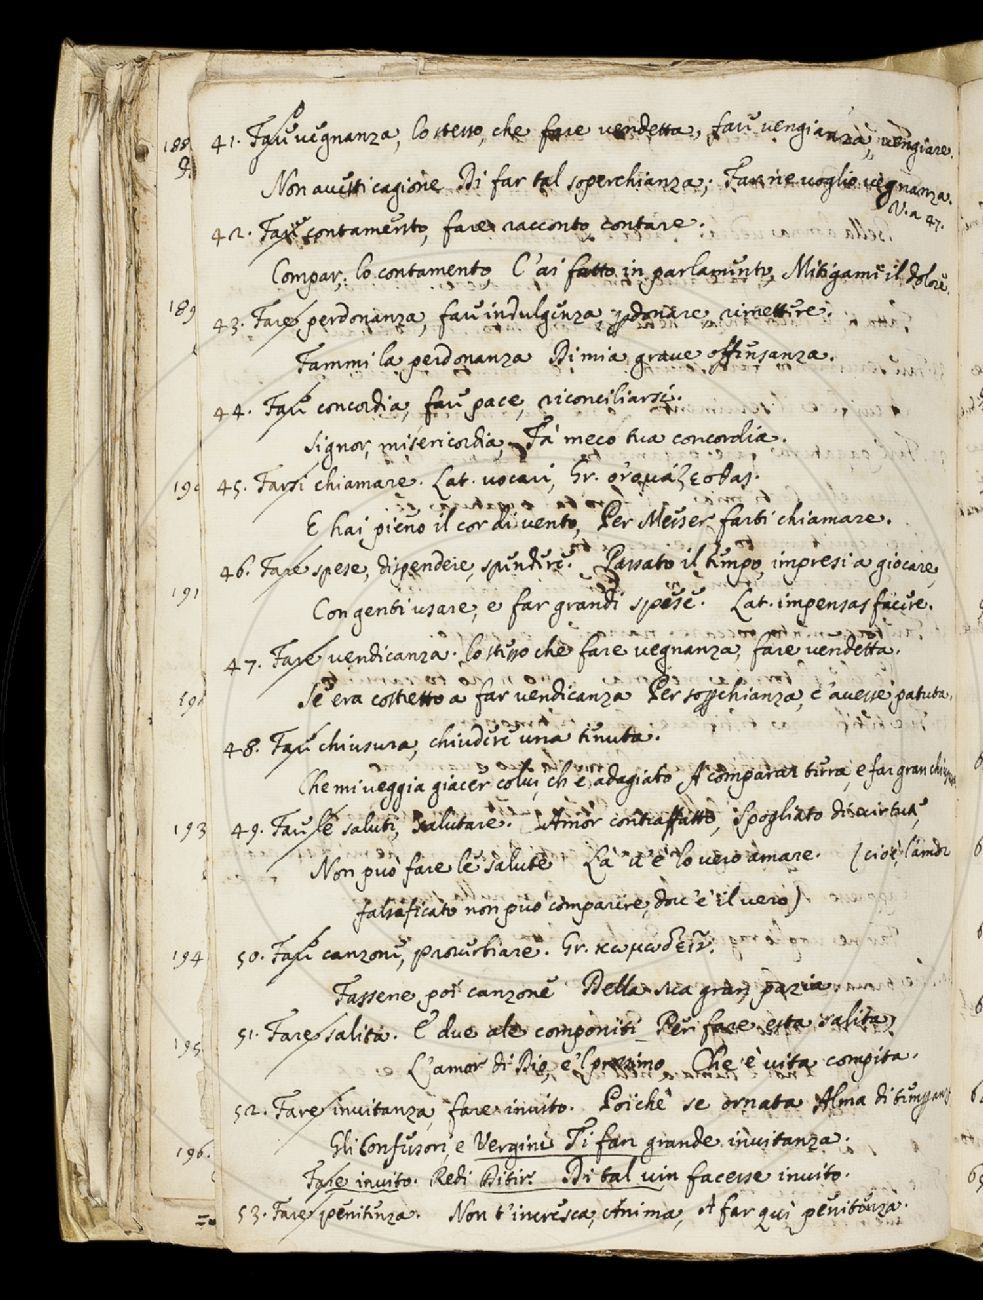 188
41. Fare vegnanza, lo stesso, che fare vendetta, fare vengianza, vengiare.
Non avesti cagione Di far tal soperchianza; Farne voglio vegnanza.
V. a 47.
42. Fare contamento, fare racconto, contare.
Compar, lo contamento C'ai fatto in parlamento, Mitigami il dolore.
189
43. Fare perdonanza, fare indulgenza, perdonare, rimettere.
Fammi la perdonanza Di mia grave offensanza.
44. Fare concordia, fare pace, riconciliarsi.
Signor, misericordia, Fa' meco tua concordia.
190
45. Farsi chiamare. Lat. vocari, Gr. ὀνομάζεσθαι.
E hai pieno il cor di vento, Per Messer farti chiamare.
46. Fare spese, dispendere, spendere. Passato il tempo, impresi a giocare,
191
Con genti usare, e far grandi spese. Lat. impensas facere.
47. Fare vendicanza. lo stesso che fare vegnanza, fare vendetta.
Se era costretto a far vendicanza Per soperchianza, c'avesse patuta.
48. Fare chiusura, chiudere una tenuta.
Che mi veggia giacer colui, ch'è adagiato A comparar terra, e far gran
193
49. Fare le saluti, salutare. Amor contraffatto, Spogliato di virtute,
Non può fare le salute Là 'v'è lo vero amare. (cioè l'amor
falsificato non può comparire, dov'è il vero)
194
50. Fare canzone, proverbiare. Gr. κωμῳδεῖν.
Fassene poi canzone Della sua gran pazia
51. Fare salita. E due ale componiti Per fare esta salita,
195
L'amor di Dio, e 'l prossimo Che è vita compita.
52. Fare invitanza, fare invito. Poichè se' ornata Alma di
Gli Confessori, e Vergini Ti fan grande invitanza.
196.
Fare invito. Redi Ditir. Di tal vin facesse invito.
53. Fare penitenza. Non t'incresca, Anima, A far quì penitenza.